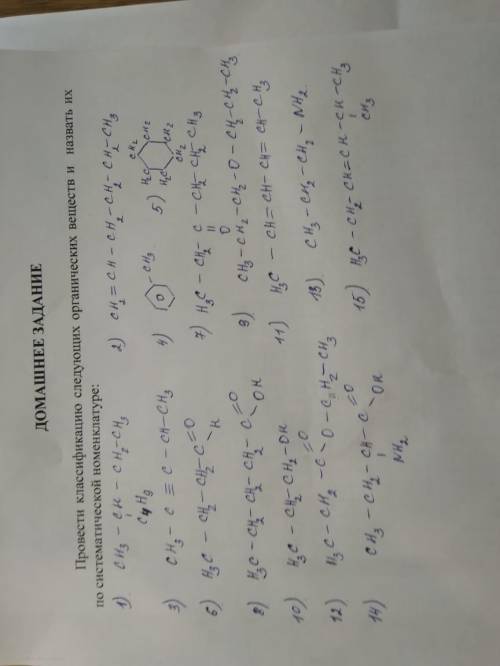 ДОМАШНЕЕ ЗАДАНИЕ
Провести классификацию следующих органических веществ и назвать их
по систематической номенклатуре:
1) CH3 – CH – CH2 – CH3
C4H9
2) CH2 = CH – CH2 – CH2 – CH2 – CH3
3) CH3 – C ≡ C – CH – CH3
4) – CH3
5) H2C CH2 CH2 H2C CH2 CH2
6) H3C – CH2 – CH2 – C =O H
7) H3C – CH2 – C – CH2 – CH2 – CH3
O
8) H3C – CH2 – CH2 – CH2 – C =O OH
9) CH3 – CH2 – CH2 – O – CH2 – CH2 – CH3
10) H3C – CH2 – CH2 – OH
11) H3C – CH = CH – CH = CH – CH3
12) H3C – CH2 – C =O O – CH2 – CH3
13) CH3 – CH2 – CH2 – NH2
14) CH3 – CH2 – CH – C =O OH
NH2
15) H3C – CH2 – CH = CH – CH – CH3
CH3